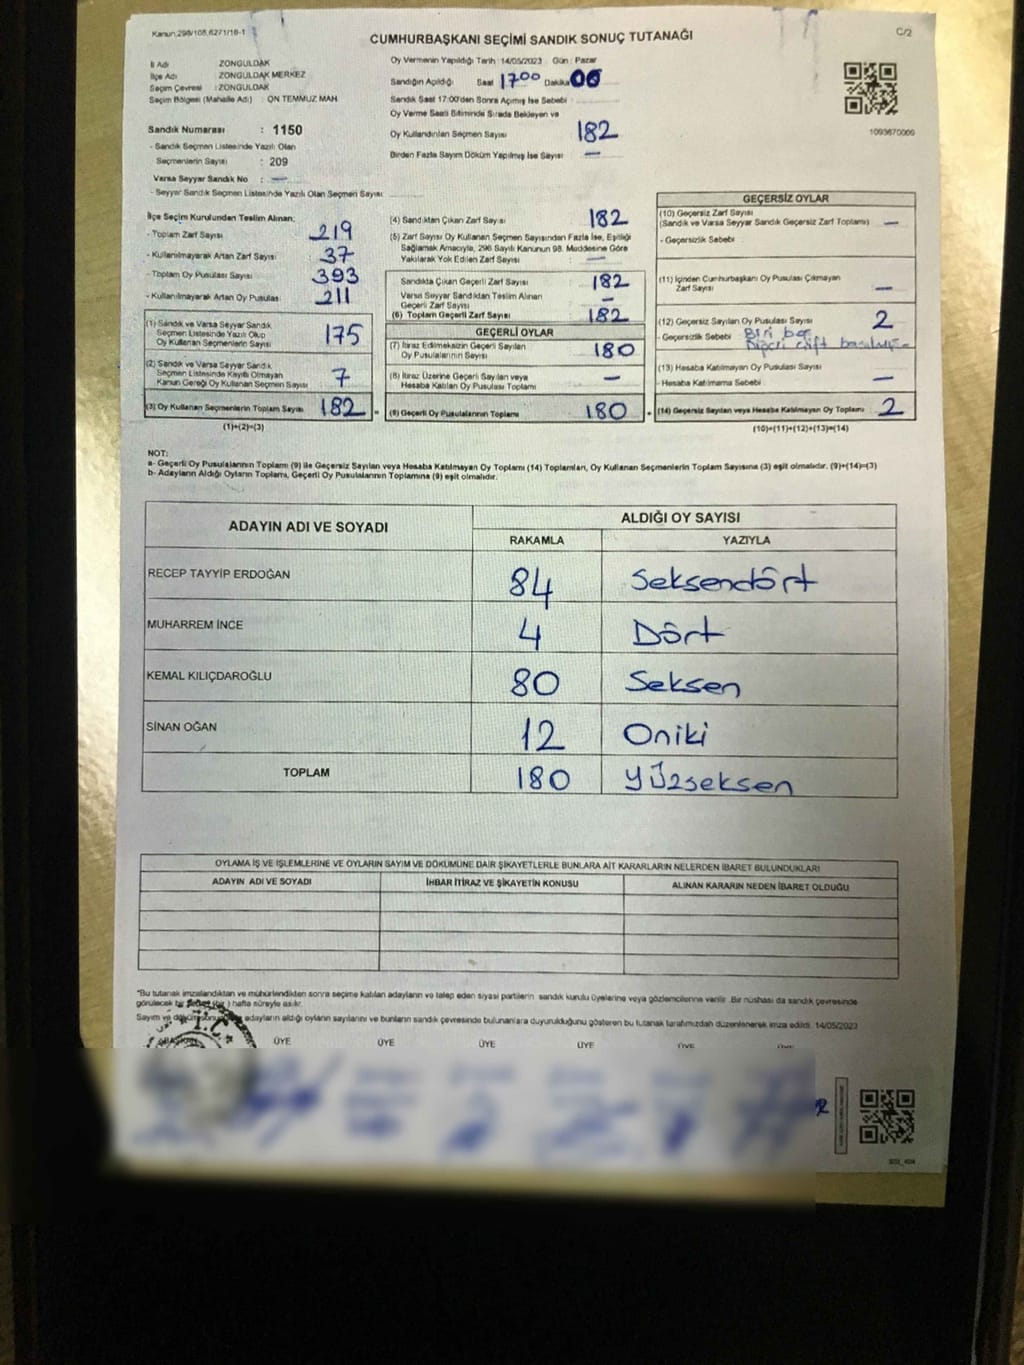 Kanun.298/105,6271/16-1
C/2
CUMHURBAŞKANI SEÇİMİ SANDIK SONUÇ TUTANAĞI
İl Adı : ZONGULDAK
İlçe Adı : ZONGULDAK MERKEZ
Seçim Çevresi : ZONGULDAK
Seçim Bölgesi (Mahalle Adı) : ON TEMMUZ MAH.
Sandık Numarası : 1150
- Sandık Seçmen Listesinde Yazılı Olan
Seçmenlerin Sayısı : 209
Varsa Seyyar Sandık No : —
- Seyyar Sandık Seçmen Listesinde Yazılı Olan Seçmen Sayısı
Oy Vermenin Yapıldığı Tarih : 14/05/2023 Gün : Pazar
Sandığın Açıldığı Saat 17 00 Dakika 00
Sandık Saat 17:00'den Sonra Açılmış İse Sebebi :
Oy Verme Saati Bitiminde Sırada Bekleyen ve
Oy Kullandırılan Seçmen Sayısı 182
Birden Fazla Sayım Döküm Yapılmış İse Sayısı —
1093670009
İlçe Seçim Kurulundan Teslim Alınan;
- Toplam Zarf Sayısı : 219
- Kullanılmayarak Artan Zarf Sayısı : 37
- Toplam Oy Pusulası Sayısı : 393
- Kullanılmayarak Artan Oy Pusulası : 211
(1) Sandık ve Varsa Seyyar Sandık
Seçmen Listesinde Yazılı Olup
Oy Kullanan Seçmenlerin Sayısı : 175
(2) Sandık ve Varsa Seyyar Sandık
Seçmen Listesinde Kayıtlı Olmayan
Kanun Gereği Oy Kullanan Seçmen Sayısı : 7
(3) Oy Kullanan Seçmenlerin Toplam Sayısı : 182 =
(1)+(2)=(3)
(4) Sandıktan Çıkan Zarf Sayısı : 182
(5) Zarf Sayısı Oy Kullanan Seçmen Sayısından Fazla İse, Eşitliği
Sağlamak Amacıyla, 298 Sayılı Kanunun 98. Maddesine Göre
Yakılarak Yok Edilen Zarf Sayısı : —
Sandıkta Çıkan Geçerli Zarf Sayısı : 182
Varsa Seyyar Sandıktan Teslim Alınan
Geçerli Zarf Sayısı : —
(6) Toplam Geçerli Zarf Sayısı : 182
GEÇERLİ OYLAR
(7) İtiraz Edilmeksizin Geçerli Sayılan
Oy Pusulalarının Sayısı : 180
(8) İtiraz Üzerine Geçerli Sayılan veya
Hesaba Katılan Oy Pusulası Toplamı : —
(9) Geçerli Oy Pusulalarının Toplamı : 180 +
GEÇERSİZ OYLAR
(10) Geçersiz Zarf Sayısı
(Sandık ve Varsa Seyyar Sandık Geçersiz Zarf Toplamı) : —
- Geçersizlik Sebebi
(11) İçinden Cumhurbaşkanı Oy Pusulası Çıkmayan
Zarf Sayısı : —
(12) Geçersiz Sayılan Oy Pusulası Sayısı : 2
- Geçersizlik Sebebi : Biri boş
Diğeri çift
(13) Hesaba Katılmayan Oy Pusulası Sayısı : —
- Hesaba Katılmama Sebebi :
(14) Geçersiz Sayılan veya Hesaba Katılmayan Oy Toplamı : 2
(10)+(11)+(12)+(13)=(14)
NOT:
a- Geçerli Oy Pusulalarının Toplamı (9) ile Geçersiz Sayılan veya Hesaba Katılmayan Oy Toplamı (14) Toplamları, Oy Kullanan Seçmenlerin Toplam Sayısına (3) eşit olmalıdır. (9)+(14)=(3)
b- Adayların Aldığı Oyların Toplamı, Geçerli Oy Pusulalarının Toplamına (9) eşit olmalıdır.
ADAYIN ADI VE SOYADI
ALDIĞI OY SAYISI
RAKAMLA YAZIYLA
RECEP TAYYİP ERDOĞAN 84 Seksendört
MUHARREM İNCE 4 Dört
KEMAL KILIÇDAROĞLU 80 Seksen
SİNAN OĞAN 12 Oniki
TOPLAM 180 Yüzseksen
OYLAMA İŞ VE İŞLEMLERİNE VE OYLARIN SAYIM VE DÖKÜMÜNE DAİR ŞİKAYETLERLE BUNLARA AİT KARARLARIN NELERDEN İBARET BULUNDUKLARI
ADAYIN ADI VE SOYADI İHBAR İTİRAZ VE ŞİKAYETİN KONUSU ALINAN KARARIN NEDEN İBARET OLDUĞU
*Bu tutanak imzalandıktan ve mühürlendikten sonra seçime katılan adayların ve talep eden siyasi partilerin sandık kurulu üyelerine veya gözlemcilerine verilir. Bir nüshası da sandık çevresinde
görülecek bir yere (bir) hafta süreyle asılır.
Sayım ve döküm sonucu adayların aldığı oyların sayılarını ve bunların sandık çevresinde bulunanlara duyurulduğunu gösteren bu tutanak tarafımızdan düzenlenerek imza edildi. 14/05/2023
T.C.
BAŞKAN ÜYE ÜYE ÜYE ÜYE ÜYE ÜYE